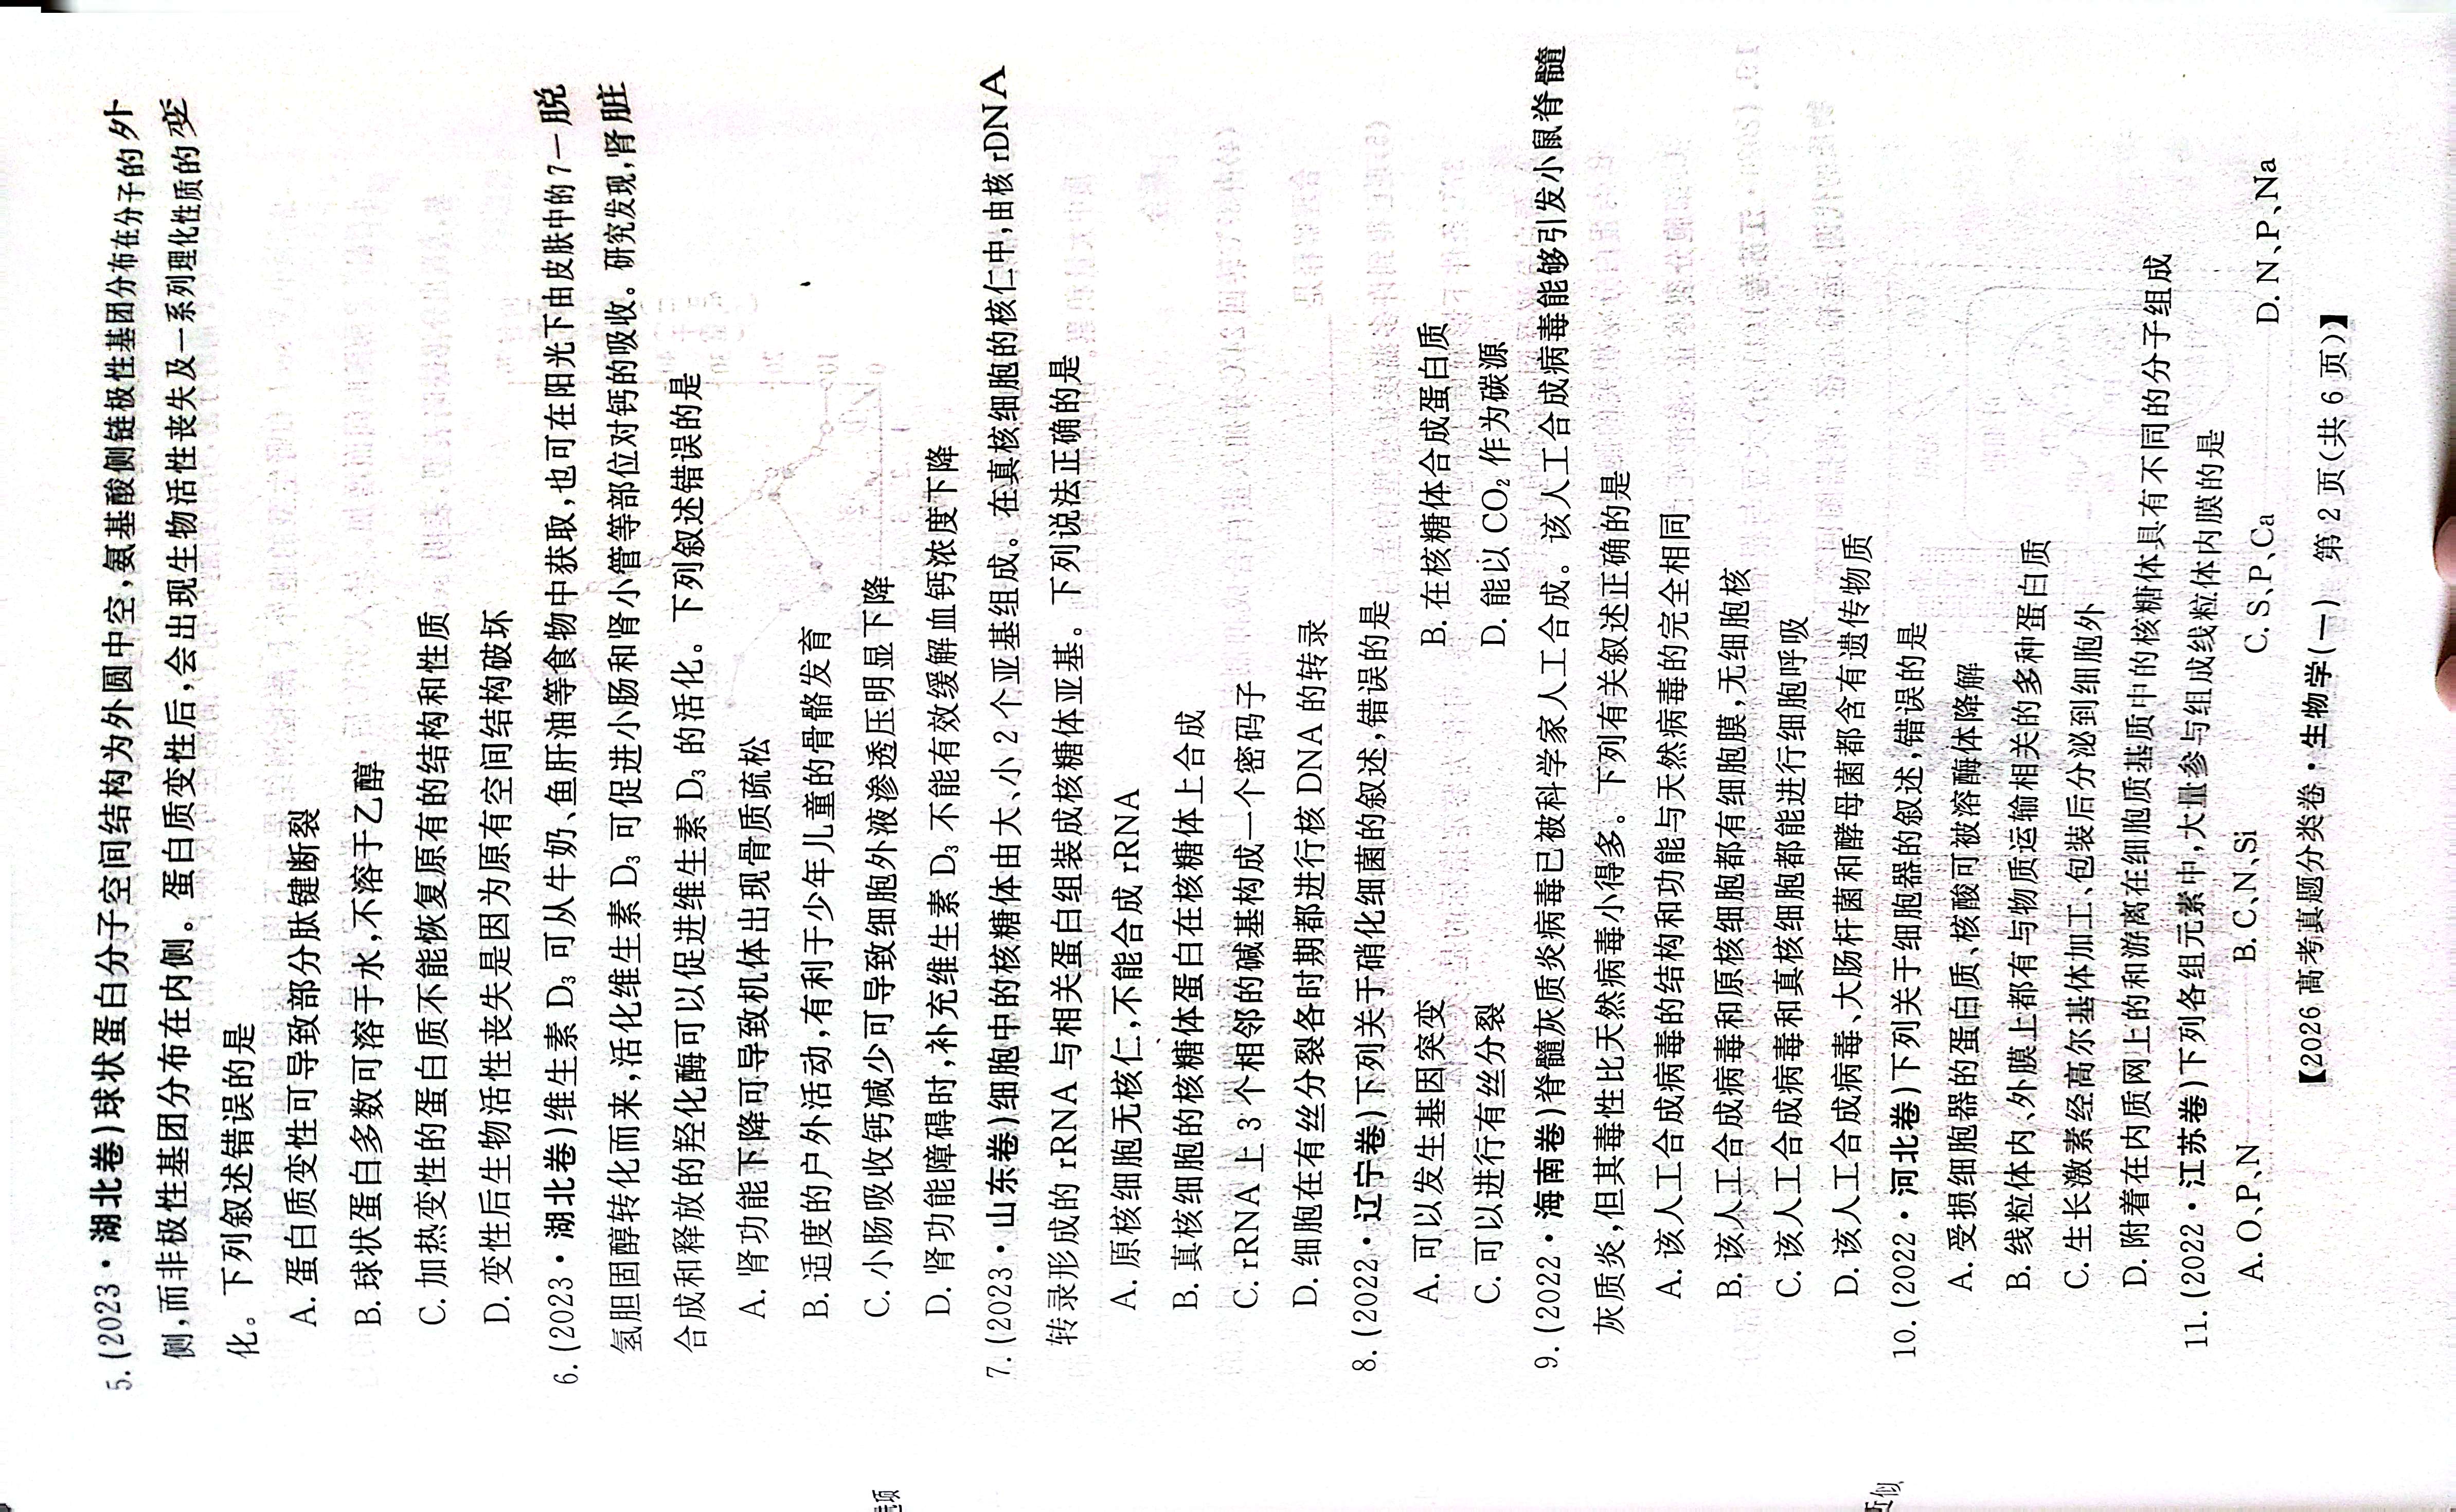 5. (2023·湖北卷)球状蛋白分子空间结构为外圆中空,氨基酸侧链极性基团分布在分子的外
侧,而非极性基团分布在内侧。蛋白质变性后,会出现生物活性丧失及一系列理化性质的变
化。下列叙述错误的是
A. 蛋白质变性可导致部分肽键断裂
B. 球状蛋白多数可溶于水,不溶于乙醇
C. 加热变性的蛋白质不能恢复原有的结构和性质
D. 变性后生物活性丧失是因为原有空间结构破坏
6. (2023·湖北卷)维生素 D₃ 可从牛奶、鱼肝油等食物中获取,也可在阳光下由皮肤中的7—脱
氢胆固醇转化而来,活化维生素 D₃ 可促进小肠和肾小管等部位对钙的吸收。研究发现,肾脏
合成和释放的羟化酶可以促进维生素 D₃ 的活化。下列叙述错误的是
A. 肾功能下降可导致机体出现骨质疏松
B. 适度的户外活动,有利于少年儿童的骨骼发育
C. 小肠吸收钙减少可导致细胞外液渗透压明显下降
D. 肾功能障碍时,补充维生素 D₃ 不能有效缓解血钙浓度下降
7. (2023·山东卷)细胞中的核糖体由大、小 2 个亚基组成。在真核细胞的核仁中,由核 rDNA
转录形成的 rRNA 与相关蛋白组装成核糖体亚基。下列说法正确的是
A. 原核细胞无核仁,不能合成 rRNA
B. 真核细胞的核糖体蛋白在核糖体上合成
C. rRNA 上 3 个相邻的碱基构成一个密码子
D. 细胞在有丝分裂各时期都进行核 DNA 的转录
8. (2022·辽宁卷)下列关于硝化细菌的叙述,错误的是
A. 可以发生基因突变 B. 在核糖体合成蛋白质
C. 可以进行有丝分裂 D. 能以 CO₂ 作为碳源
9. (2022·海南卷)脊髓灰质炎病毒已被科学家人工合成。该人工合成病毒能够引发小鼠脊髓
灰质炎,但其毒性比天然病毒小得多。下列有关叙述正确的是
A. 该人工合成病毒的结构和功能与天然病毒的完全相同
B. 该人工合成病毒和原核细胞都有细胞膜,无细胞核
C. 该人工合成病毒和真核细胞都能进行细胞呼吸
D. 该人工合成病毒、大肠杆菌和酵母菌都含有遗传物质
10. (2022·河北卷)下列关于细胞器的叙述,错误的是
A. 受损细胞器的蛋白质、核酸可被溶酶体降解
B. 线粒体内、外膜上都有与物质运输相关的多种蛋白质
C. 生长激素经高尔基体加工、包装后分泌到细胞外
D. 附着在内质网上的和游离在细胞质基质中的核糖体具有不同的分子组成
11. (2022·江苏卷)下列各组元素中,大量参与组成线粒体内膜的是
A. O、P、N B. C、N、Si C. S、P、Ca D. N、P、Na
【2026 高考真题分类卷·生物学(一) 第 2 页(共 6 页)】
选项
近似